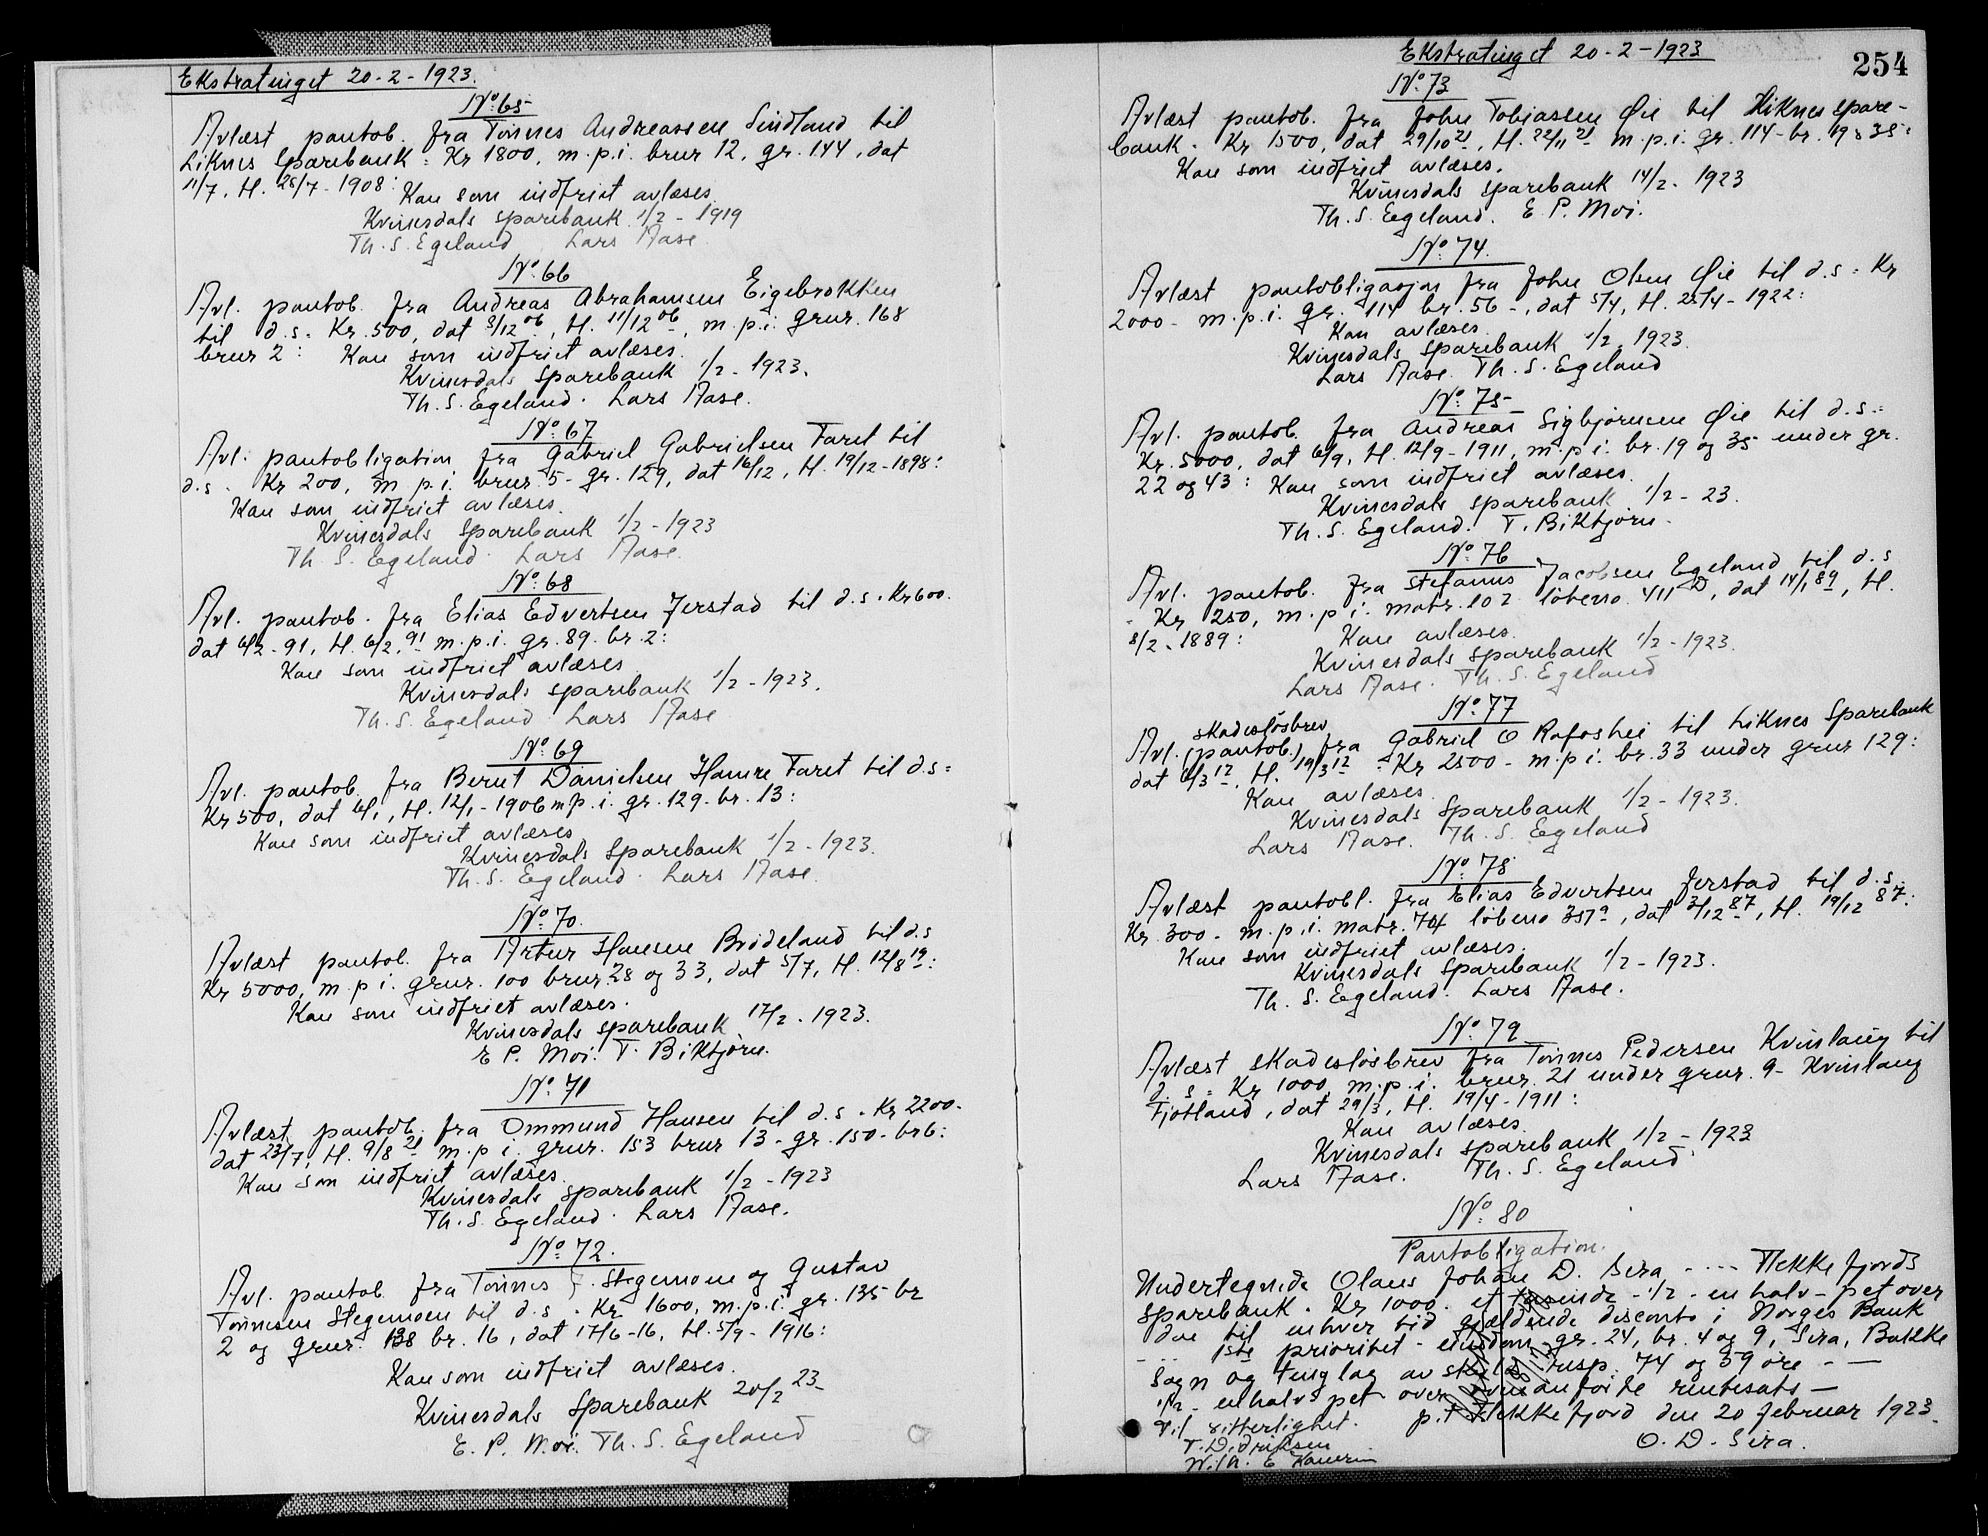 Ekstratinget 20-2-1923.
No: 65
Avlæst pantob. fra Tønnes Andreassen Sindland til
Liknes Sparebank: Kr 1800, m.p.i. brur 12, gr. 144, dat
11/7, H. 25/7-1908:
Kan som indfriet avlæses.
Kvinesdals sparebank 1/2-1919
Th. S. Egeland Lars Aase.
No: 66
Avl. pantob. fra Andreas Abrahamsen Eigebrokken
til d.s. Kr. 500, dat 8/12 06, H. 11/12 06, m.p.i. grur. 168
brur 2: Kan som indfriet avlæses.
Kvinesdals Sparebank 1/2-1923.
Th. S. Egeland. Lars Aase.
No: 67
Avl. pantobligation fra Gabriel Gabrielsen Faret til
d.s. Kr 200, m.p.i. brur. 5- gr. 129, dat 16/12, H. 19/12-1898:
Kan som indfriet avlæses.
Kvinesdals Sparebank 1/2-1923
Th. S. Egeland. Lars Aase.
No: 68
Avl. pantob. fra Elias Edvertsen Jerstad til d.s. Kr 600.
dat 6/2-91, H. 6/2 91 m.p.i. gr. 89. br. 2:
Kan som indfriet avlæses
Kvinesdals sparebank 1/2-1923.
Th. S. Egeland. Lars Aase
No: 69
Avl. pantob. fra Bernt Danielsen Hamre Faret til d.s=
Kr 500, dat 6/1, H. 12/1-1906 m.p.i. gr. 129. br. 13:
Kan som indfriet avlæses
Kvinesdals Sparebank 1/2-1923.
Th. S. Egeland. Lars Aase.
No: 70.
Avlæst pantob. fra Artur Hansen Brødeland til d.s
Kr 5000, m.p.i. grur. 100 brur. 28 og 33, dat 5/7, H. 12/8 19:
Kan som indfriet avlæses.
Kvinesdals sparebank 17/2. 1923.
E P. Moi. T. Bikkjørn.
No: 71
Avlæst pantob. fra Ommund Hansen til d.s. Kr 2200.
dat 23/7, H. 9/8 21 m.p.i. grur. 153 brur 13- gr. 150- br 6:
Kan som indfriet avlæses.
Kvinesdals sparebank 1/2-1923
Th. S. Egeland. Lars Aase.
No: 72.
Avl. pantob. fra Tønnes F. Stegemoen og Gustav
Tønnesen Stegemoen til d.s. Kr 1600, m.p.i. gr. 135 br
2 og grur. 138 br. 16, dat 17/6-16, H. 5/9-1916:
Kan som indfriet avlæses.
Kvinesdals Sparebank 20/2 23-
E. P. Moi. Th. S. Egeland
Ekstratinget 20-2-1923
254
No: 73
Avlæst pantob. fra John Tobiassen Øie til Liknes spare-
bank. Kr 1500, dat 29/10 21, H. 22/11 21 m.p.i. gr. 114- br. 19 & 35:
Kan som indfriet avlæses.
Kvinesdals sparebank 14/2. 1923
Th. S. Egeland. E. P. Moi.
No: 74.
Avlæst pantobligasjon fra John Olsen Øie til d.s: Kr
2000- m.p.i. gr. 114 br. 56-, dat 5/4, H. 25/4-1922:
Kan avlæses
Kvinesdals Sparebank 1/2. 1923.
Lars Aase. Th. S. Egeland
No: 75-
Avl. pantob. fra Andreas Sigbjørnsen Øie til d.s.:
Kr. 5000, dat 6/9, H. 12/9-1911, m.p.i. br. 19 og 35 under gr.
22 og 43: Kan som indfriet avlæses.
Kvinesdals sparebank 1/2-23.
Th. S. Egeland. T. Bikkjørn.
No: 76
Avl. pantob. fra Stefanus Jacobsen Egeland til d.s
. Kr 250, m.p.i. matr. 102 løbeno. 411 D, dat 14/1 89, H.
8/2. 1889: Kan avlæses.
Kvinesdals sparebank 1/2-1923.
Lars Aase. Th. S. Egeland
No: 77
skadesløsbrev
Avl. (pantob.) fra Gabriel O Rafoshei til Liknes Sparebank
dat 6/3 12, H. 19/3 12: Kr 2500- m.p.i. br. 33 under grur 129:
Kan avlæses.
Kvinesdals Sparebank 1/2-1923.
Lars Aase. Th. S. Egeland
No: 78
Avlæst pantobl. fra Elias Edvertsen Jerstad til d.s.
Kr. 300- m.p.i. matr. 74 løbeno 357 a, dat 3/12 87, H. 19/12 87:
Kan som indfriet avlæses.
Kvinesdals Sparebank 1/2-1923.
Th. S. Egeland. Lars Aase.
No: 79
Avlæst skadesløsbrev fra Tønnes Pedersen Kvinlaug til
d.s= Kr 1000, m.p.i. brur. 21 under grur. 9- Kvinlaug
Fjotland, dat 29/3, H. 19/4-1911:
Kan avlæses.
Kvinesdals sparebank 1/2-1923
Lars Aase. Th. S. Egeland
No: 80
Pantobligation.
Undertegnede Olaus Johan D. Sira - ... Flekkefjords
sparebank. Kr 1000. et tusinde - 1/2 - en halv - pct over
den til enhver tid gjældende disconto i Norges Bank
- ... 1ste prioritet - eiendom gr. 24, br. 4 og 9, Sira, Bakke
sogn og tinglag av skyld resp. 74 og 59 øre - -
1/2 - en halv pct over ovenanførte rentesats -
p.t Flekkefjord den 20 februar 1923.
O. D. Sira.
Til vitterlighet.
T. Didriksen